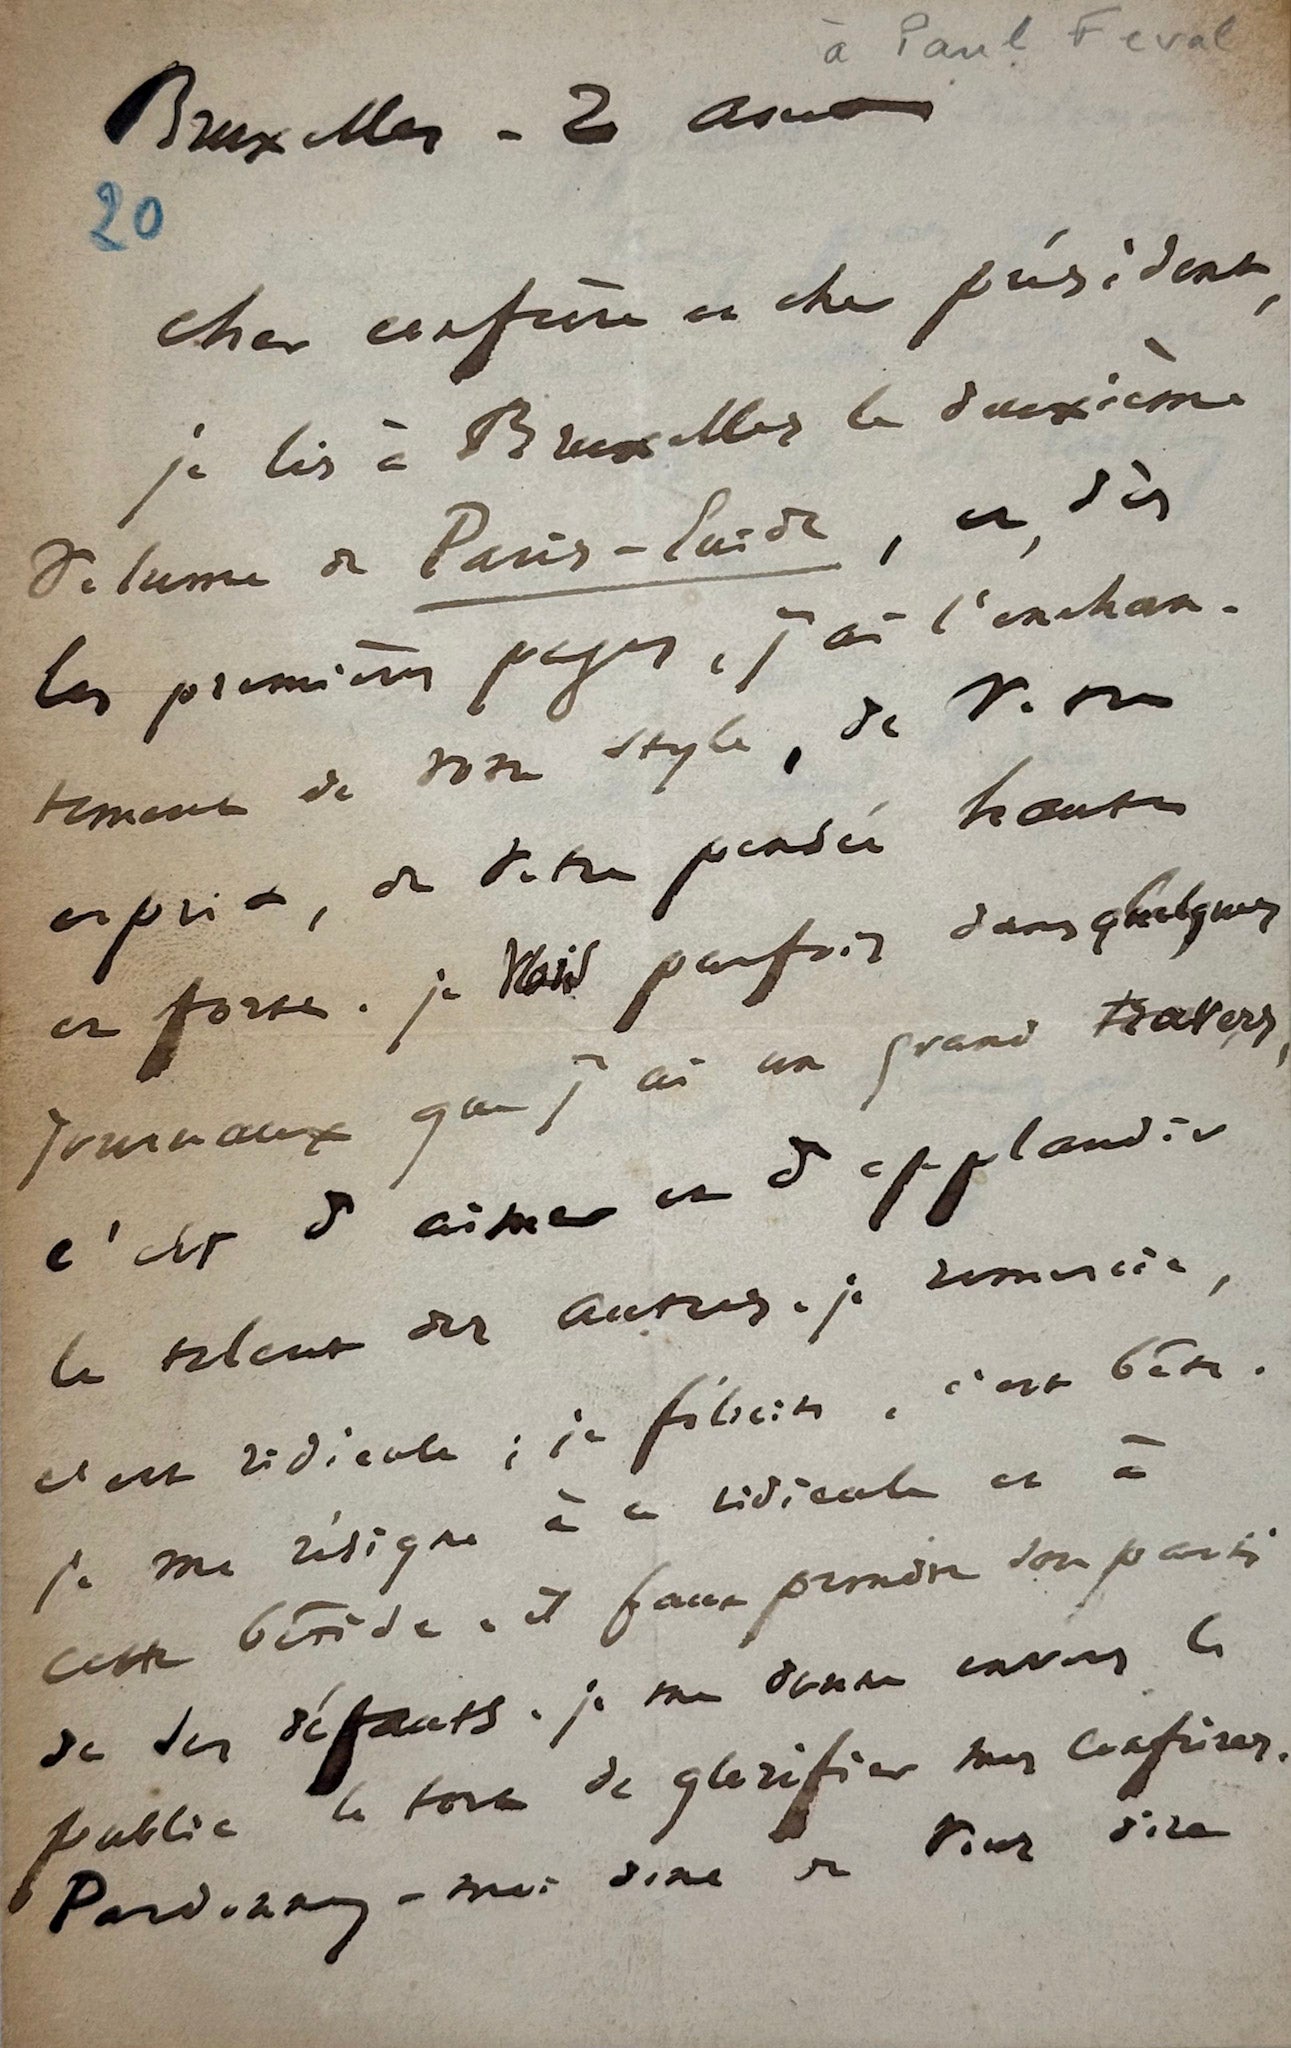 à Paul Feval
Bruxelles - 2 août
20
cher confrère et cher président,
je lis à Bruxelles le deuxième
volume de Paris-Guide, et, dès
les premières pages, j'ai l'enchan-
tement de votre style, de votre
esprit, de votre pensée haute
et forte. je vois parfois dans quelques
journaux que j'ai un grand travers,
c'est d'aimer et d'applaudir
le talent des autres. je remercie,
c'est ridicule ; je félicite, c'est bête.
je me résigne à ce ridicule et à
cette bêtise. il faut prendre son parti
de ses défauts. je me donne envers le
public le tort de glorifier mes confrères.
Pardonnez-moi donc de vous dire